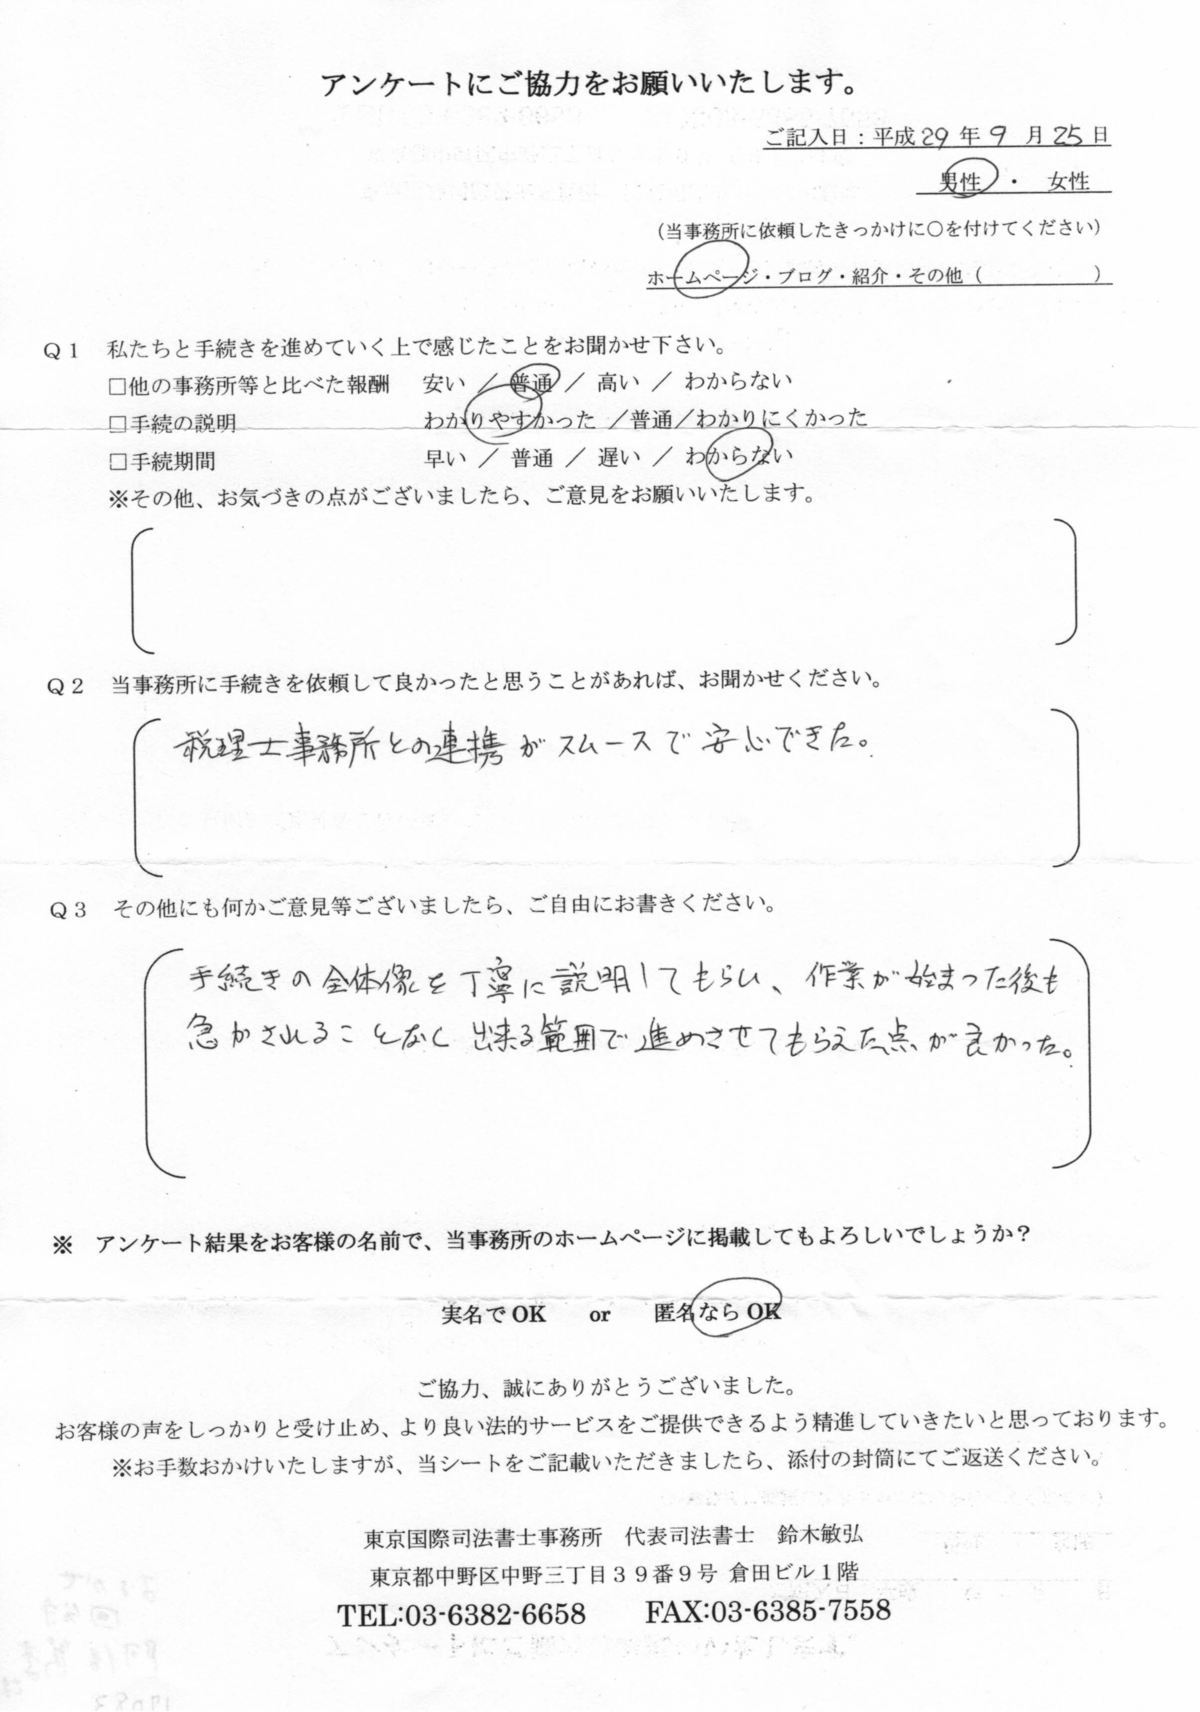 アンケートにご協力をお願いいたします。
ご記入日：平成29年9月25日
男性・女性
（当事務所に依頼したきっかけに○を付けてください）
ホームページ・ブログ・紹介・その他（　　　　　）
Q1　私たちと手続きを進めていく上で感じたことをお聞かせ下さい。
□他の事務所等と比べた報酬　安い ／ 普通 ／ 高い ／ わからない
□手続の説明　わかりやすかった ／普通／わかりにくかった
□手続期間　早い ／ 普通 ／ 遅い ／ わからない
※その他、お気づきの点がございましたら、ご意見をお願いいたします。
Q2　当事務所に手続きを依頼して良かったと思うことがあれば、お聞かせください。
税理士事務所との連携がスムースで安心できた。
Q3　その他にも何かご意見等ございましたら、ご自由にお書きください。
手続きの全体像を丁寧に説明してもらい、作業が始まった後も
急かされることなく出来る範囲で進めさせてもらえた点が良かった。
※　アンケート結果をお客様の名前で、当事務所のホームページに掲載してもよろしいでしょうか？
実名でOK　or　匿名ならOK
ご協力、誠にありがとうございました。
お客様の声をしっかりと受け止め、より良い法的サービスをご提供できるよう精進していきたいと思っております。
※お手数おかけいたしますが、当シートをご記載いただきましたら、添付の封筒にてご返送ください。
東京国際司法書士事務所　代表司法書士　鈴木敏弘
東京都中野区中野三丁目３９番９号 倉田ビル１階
TEL:03-6382-6658　FAX:03-6385-7558